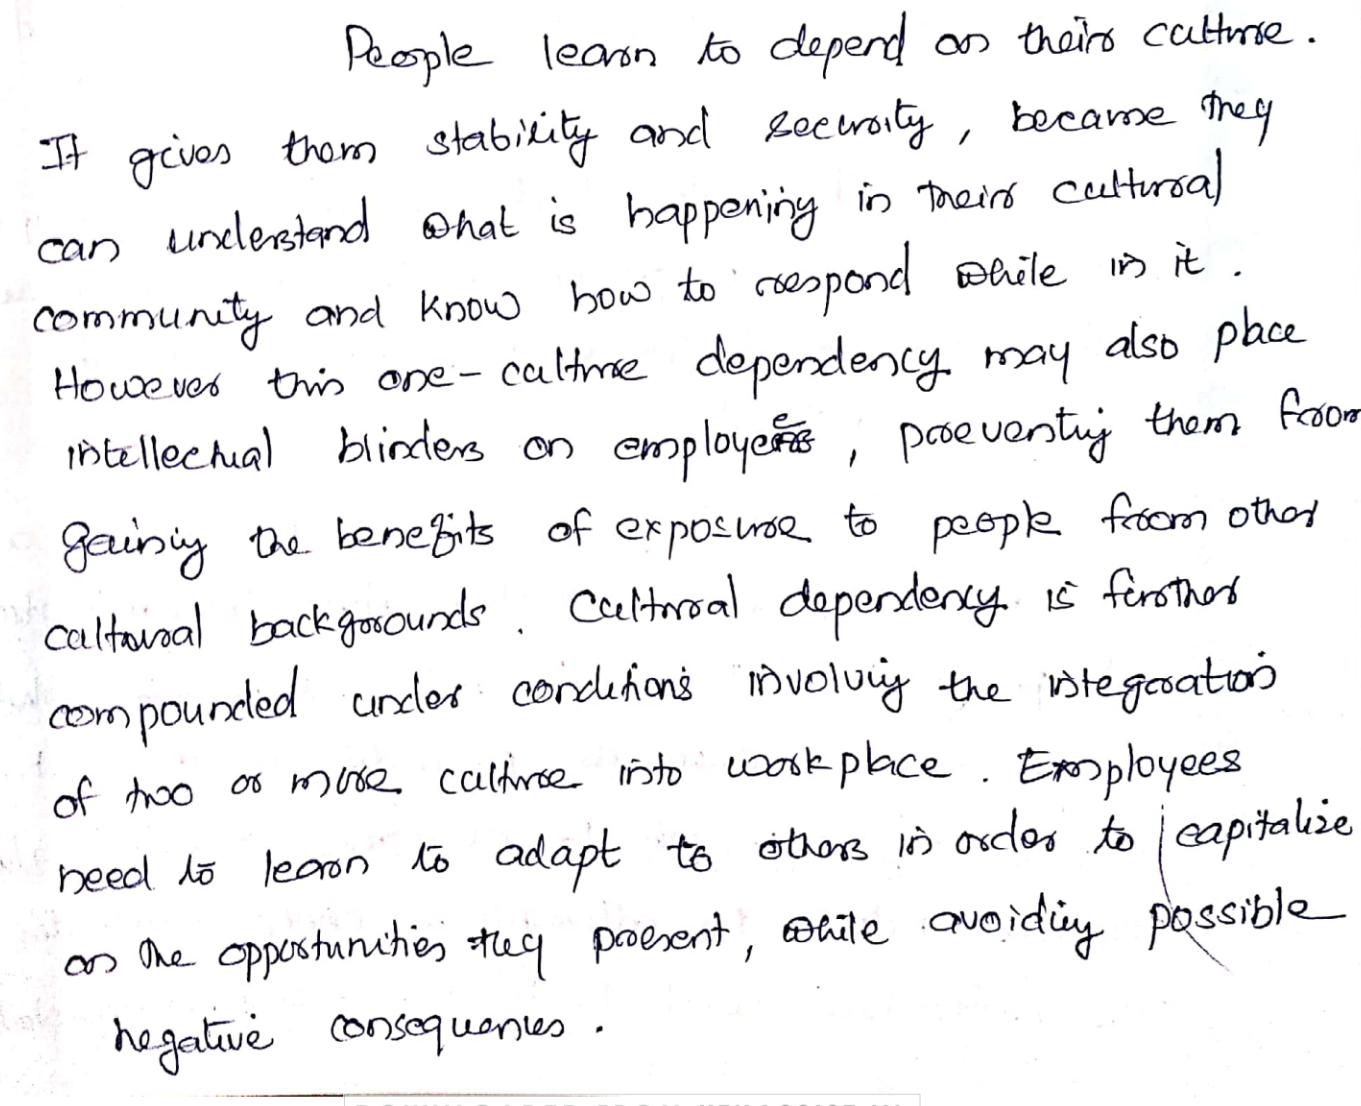 People learn to depend on their culture.
It gives them stability and security, because they
can understand what is happening in their cultural
community and know how to respond while in it.
However this one-culture dependency may also place
intellectual blinders on employees, preventing them from
gaining the benefits of exposure to people from other
cultural backgrounds. Cultural dependency is further
compounded under conditions involving the integration
of two or more culture into workplace. Employees
need to learn to adapt to others in order to capitalize
on the opportunities they present, while avoiding possible
negative consequences.